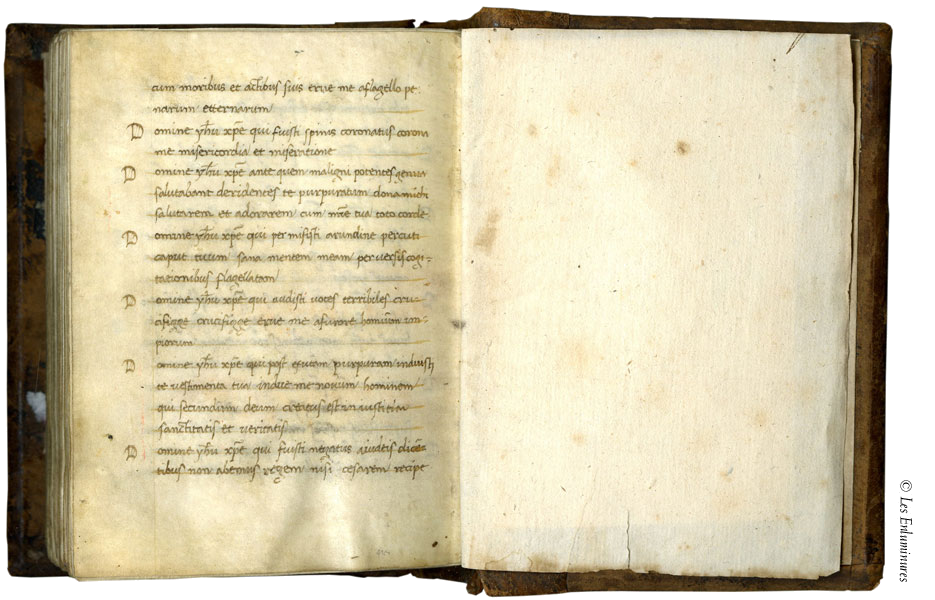 cum moribus et actibus suis erue me aflagello pe
narum etternarum
Domine yhu xpe qui fuisti spinis coronatus corona
me misericordia et miseratione
Domine yhu xpe ante quem maligni potentes genua
salutabant deridentes te purpuratum dona michi
salutarem et adorarem cum mre tua toto corde
Domine yhu xpe qui permisisti arundine percuti
caput tuum sana mentem meam perversis cogi-
tationibus flagellatam
Domine yhu xpe qui audisti voces terribiles cru-
cifigge crucifigge erue me afurore hominum im-
piorum
Domine yhu xpe qui post exutam purpuram induisti
te vestimenta tua indue me novum hominem
qui secundum deum creatus est in iustitia
sanctitatis et veritatis
Domine yhu xpe qui fuisti negatus iudeis dicen-
tibus non abemus regem nisi cesarem recipe
© Les Enluminures